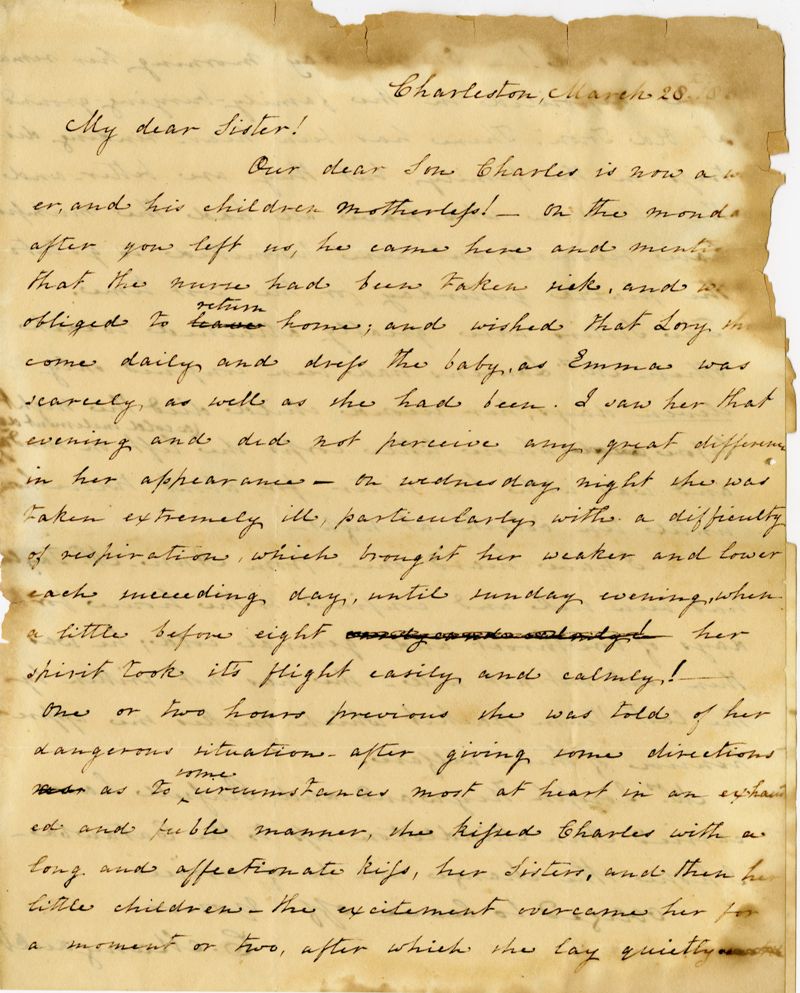 Charleston, March 28
My dear Sister!
Our dear Son Charles is now a w
er, and his children motherless! — On the monda
after you left us, he came here and ment
that the nurse had been taken sick, and w
obliged to leave return home; and wished that Lory
come daily and dress the baby, as Emma was
scarcely as well as she had been. I saw her that
evening and did not perceive any great difference
in her appearance — On wednesday night she was
taken extremely ill, particularly with a difficulty
of respiration, which brought her weaker and lower
each succeeding day, until sunday evening, when
a little before eight her
spirit took its flight easily and calmly! —
One or two hours previous she was told of her
dangerous situation — after giving some directions
as to some circumstances most at heart in an exhaust
ed and feeble manner, she kissed Charles with a
long and affectionate kiss, her Sisters, and then her
little children — the excitement overcame her for
a moment or two, after which she lay quietly